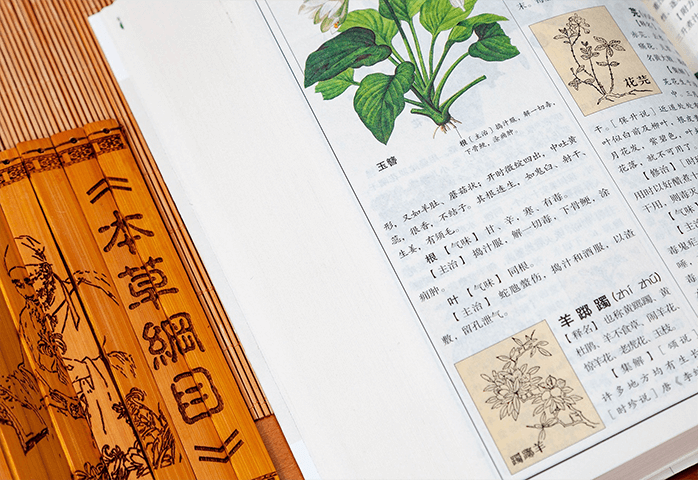 《本草綱目》
玉簪
根〔主治〕捣汁服，解一切毒，
下骨鲠，涂痈肿。
形，又如羊肚、蘑菇状；开时微绽四出，中吐黄
蕊，很香，不结子。其根连生，如鬼臼、射干、
生姜，有须毛。
根【气味】甘、辛、寒，有毒。
【主治】捣汁服，解一切毒，下骨鲠，涂
痈肿。
叶【气味】同根。
【主治】蛇虺螫伤，捣汁和酒服，以渣
敷，留孔泄气。
羊踯躅(zhí zhú)
【释名】也称黄踯躅、黄
杜鹃、羊不食草、闹羊花、
惊羊花、老虎花、玉枝。
【集解】〔颂说〕
许多地方均有生
〔时珍说〕唐《李
躅躑羊
花芫
芫
干。〔保升说〕近道处处
叶似白前及柳叶，根皮
月花发，紫碧色，叶
花落，就不可用了
【修治】〔
用时以好醋煮
干用，则毒灭
【气味
毒鬼疰
唾，